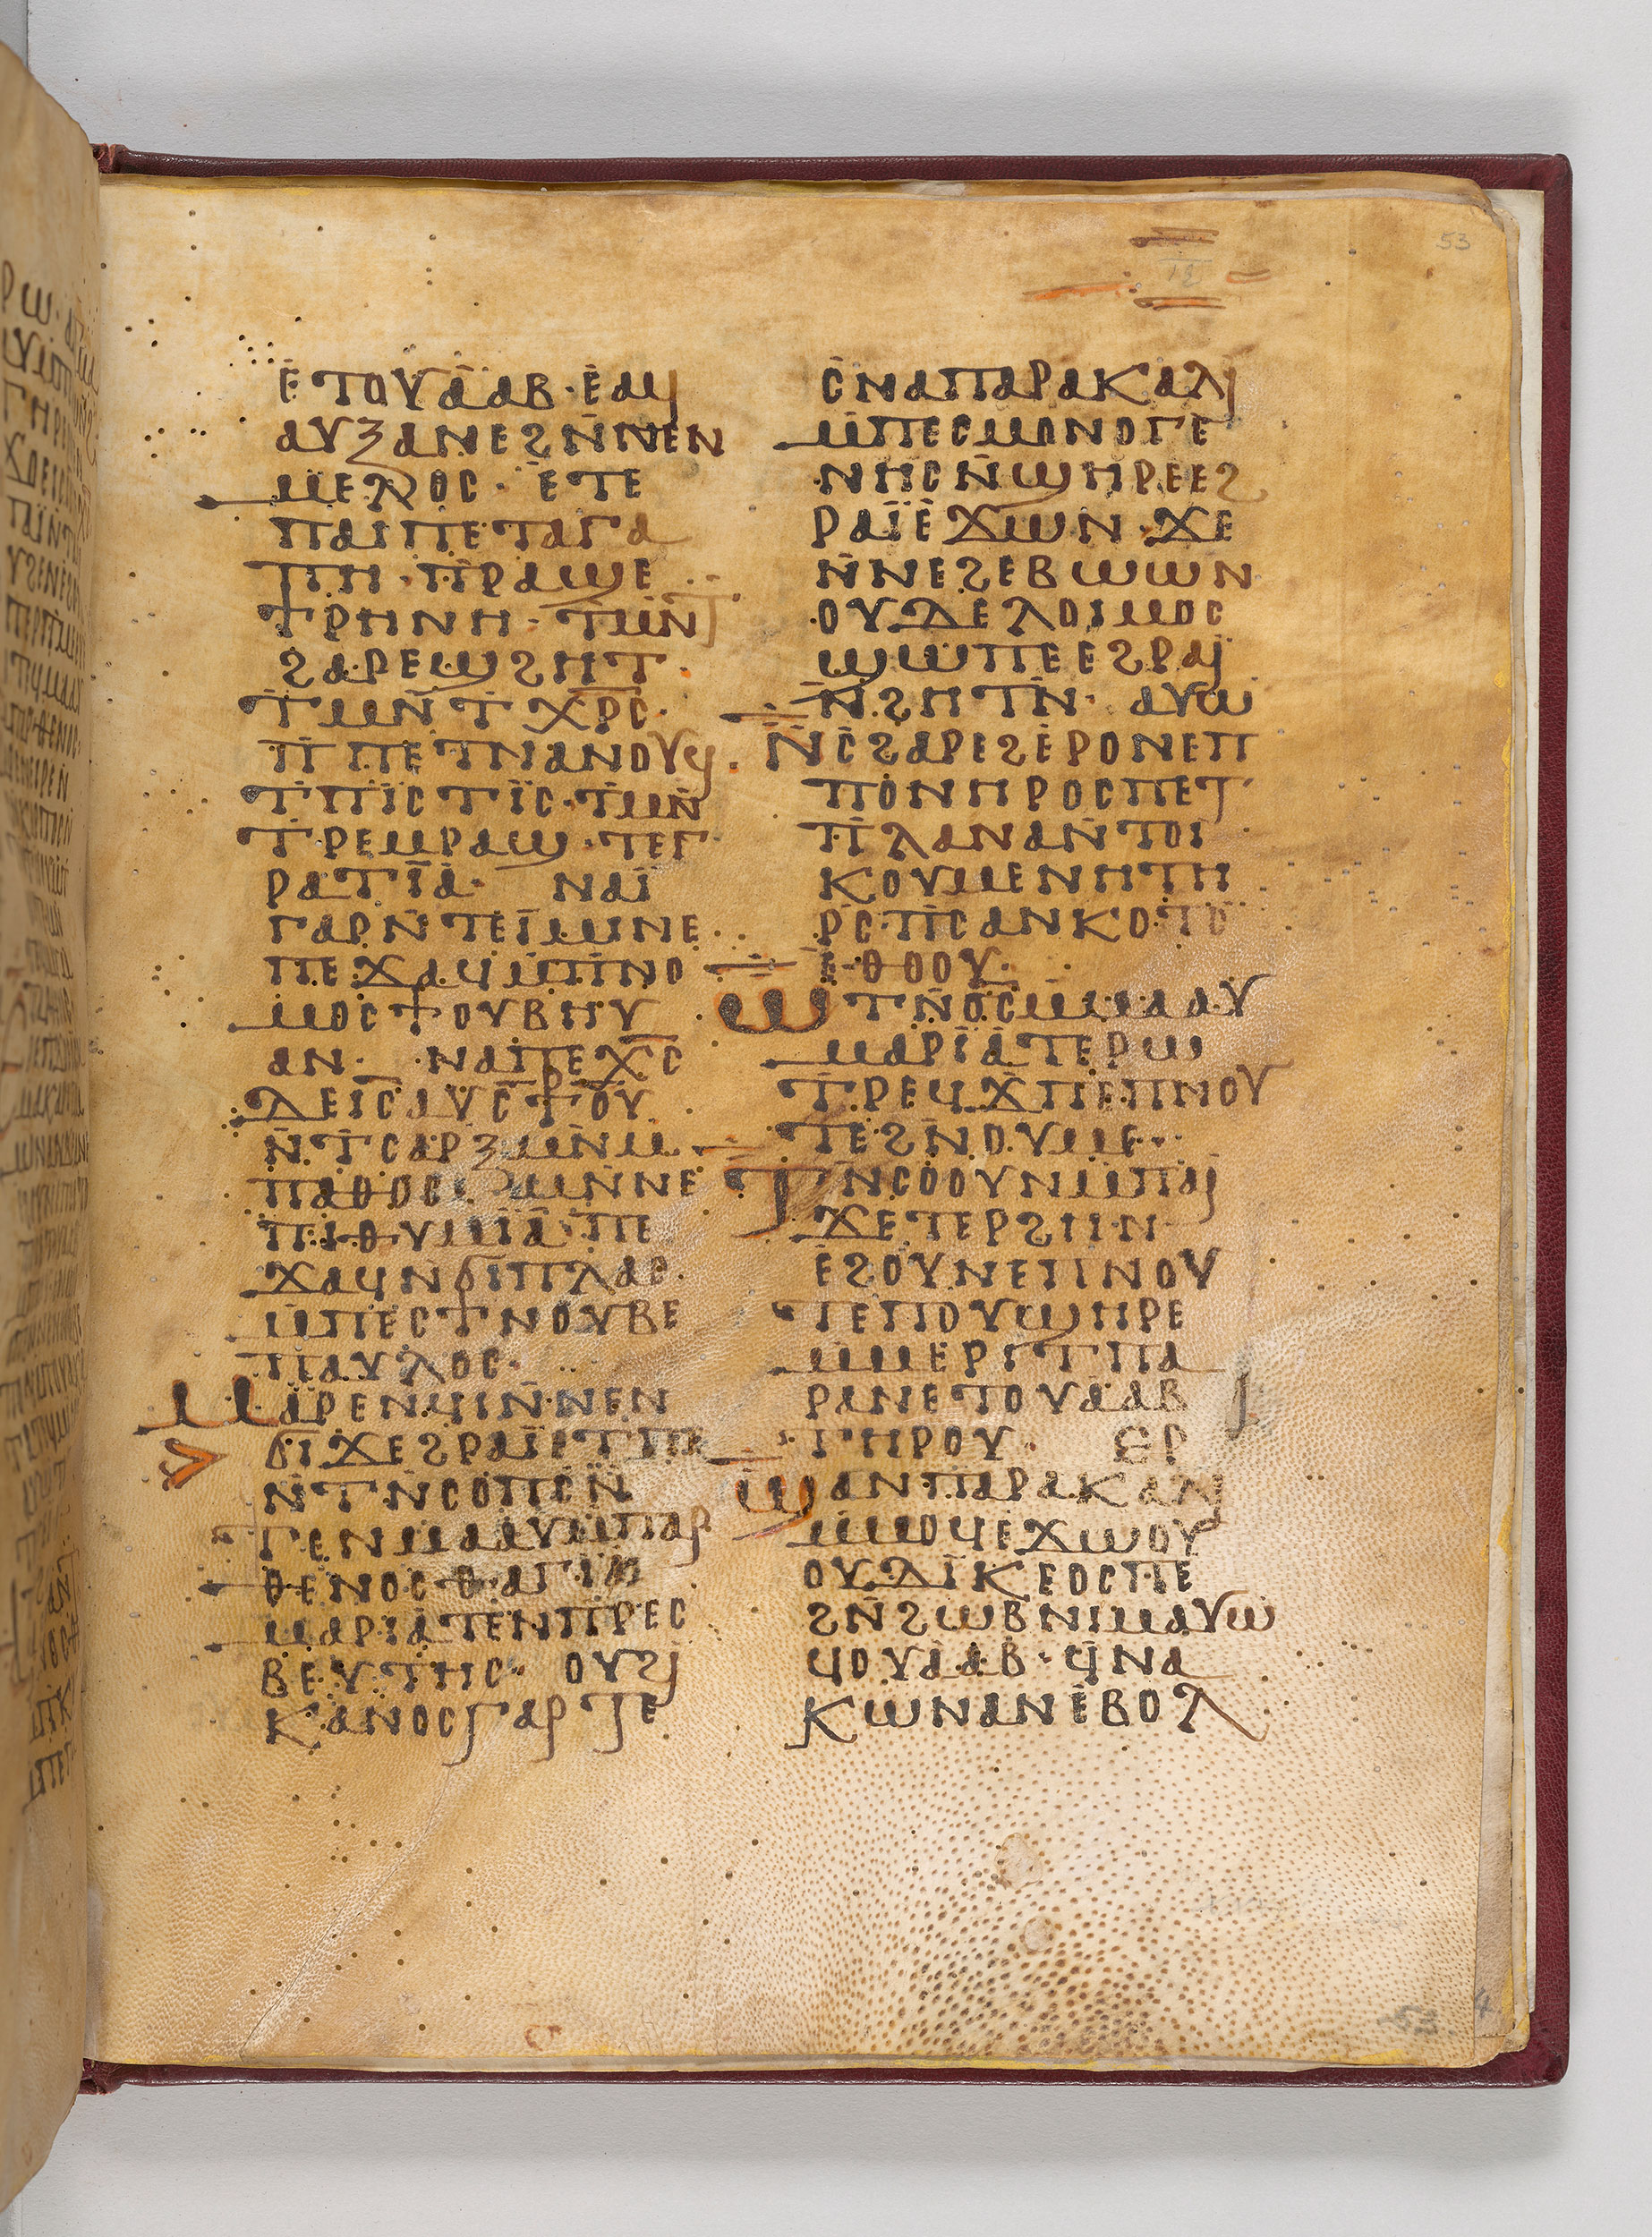 53
ⲉ̇ⲧⲟⲩⲁ̇ⲁⲃ · ⲉ̇ⲁϥ
ⲁⲩⲝⲁⲛⲉϩⲛ̇ⲛⲉⲛ
ⲙⲉⲗⲟⲥ · ⲉ̇ⲧⲉ
ⲡⲁⲓⲡⲉⲧⲁⲅⲁ
ⲡⲏ · ⲡ̇ⲣⲁϣⲉ
ϯⲣⲏⲛⲏ · ⲧ̇ⲙⲛ̇ⲧ
ϩⲁⲣⲉϣϩⲏⲧ ·
ⲧ̇ⲙⲛ̇ⲧⲭⲣ̅ⲥ̅ ·
ⲡ̇ⲡⲉⲧⲛⲁⲛⲟⲩϥ
ⲧ̇ⲡⲓ̈ⲥⲧⲓ̈ⲥ · ⲧ̇ⲙⲛ̇
ⲧ̇ⲣⲉⲙⲣⲁϣ · ⲧⲉⲅ
ⲣⲁⲧⲓ̈ⲁ̇ · ⲛⲁⲓ̈
ⲅⲁⲣⲛ̇ⲧⲉⲓ̈ⲙⲓⲛⲉ
ⲡⲉϫⲁϥⲙ̇ⲡ̇ⲛⲟ
ⲙⲟⲥϯⲟⲩⲃⲏⲩ
ⲁⲛ · ⲛⲁⲡⲉⲭ̅ⲥ̅
ⲇⲉⲓ̅ⲥ̅ⲁⲩⲥ̅ⲣ̅ⲟ̅ⲩ̅
ⲛ̇ⲧⲥⲁⲣⲝⲙⲛ̇ⲙ
ⲡⲁⲑⲟⲥ ⲙⲛ̇ⲛⲉ
ⲡⲓⲑⲩⲙⲓ̈ⲁ ⲡⲉ
ϫⲁϥⲛϭⲓⲡⲗⲁⲥ
ⲙ̇ⲡⲉⲥϯⲛⲟⲩⲃⲉ
ⲡⲁⲩⲗⲟⲥ ·
ⲙⲁⲣⲉⲛϥⲓⲛ̇ⲛⲉⲛ
ϭⲓϫⲉϩⲣⲁⲓ̈ⲉⲧⲡⲉ
ⲛ̇ⲧⲛ̇ⲥⲟⲡⲥⲛ̇
ⲧⲉⲛⲙⲁⲁⲩⲙ̇ⲡⲁⲣ
ⲑⲉⲛⲟⲥⲑⲁⲅⲓⲁ
ⲙⲁⲣⲓⲁⲧⲉⲛⲡ̇ⲣⲉⲥ
ⲃⲉⲩⲧⲏⲥ · ⲟⲩϩⲓ
ⲕⲁⲛⲟⲥⲅⲁⲣⲧⲉ
ⲥ̇ⲛⲁⲡⲁⲣⲁⲕⲁⲗⲓ
ⲙ̇ⲡⲉⲥⲙⲟⲛⲟⲅⲉ
ⲛⲏⲥⲛ̇ϣⲏⲣⲉⲉϩ
ⲣⲁⲓ̈ⲉ̇ϫⲱⲛ · ϫⲉ
ⲛ̇ⲛⲉϩⲉⲃⲱⲱⲛ
ⲟⲩⲇⲉⲗⲟⲓⲙⲟⲥ
ϣⲱⲡⲉⲉϩⲣⲁⲓ̈
ⲛ̇ϩⲏⲧⲛ̇ · ⲁⲩⲱ
ⲛ̇ⲥ̇ϩⲁⲣⲉϩⲉ̇ⲣⲟⲛⲉⲡ
ⲡⲟⲛⲏⲣⲟⲥⲡⲉⲧ
ⲡ̇ⲗⲁⲛⲁⲛ̇ⲧⲟⲓ
ⲕⲟⲩⲙⲉⲛⲏⲧⲏ
ⲣⲥ̇ · ⲡ̇ⲥⲁⲛⲕⲟⲧⲥ̇
ⲉ̇ⲑⲟⲟⲩ ·
ⲱⲧⲛ̇ⲟϭⲙ̇ⲙⲁⲁⲩ
ⲙⲁⲣⲓ̈ⲁ̇ⲧⲉⲣⲱ
ⲧ̇ⲣⲉϥϫⲡⲉⲡⲛⲟⲩ
ⲧⲉϩⲛ̇ⲟⲩⲙⲉ ·
ⲧⲛ̇ⲥⲟⲟⲩⲛⲙ̇ⲡⲁⲓ
ϫⲉⲧⲉⲣϩⲏⲛ
ⲉ̇ϩⲟⲩⲛⲉⲡⲛⲟⲩ
ⲧⲉⲡⲟⲩϣⲏⲣⲉ
ⲙ̇ⲙⲉⲣⲓⲧⲡⲁ
ⲣⲁⲛⲉⲧⲟⲩⲁ̇ⲁⲃ
ⲧⲏⲣⲟⲩ · ⲉⲣ
ϣⲁⲛⲡⲁⲣⲁⲕⲁⲗⲓ
ⲙ̇ⲙⲟϥⲉ̇ϫⲱⲟⲩ
ⲟⲩⲇⲓ̈ⲕⲉⲟⲥⲡⲉ
ϩⲛ̇ϩⲱⲃⲛⲓⲙⲁⲩⲱ
ϥⲟⲩⲁ̇ⲁⲃ · ϥ̇ⲛⲁ
ⲕⲱⲛⲁⲛⲉ̇ⲃⲟⲗ
53